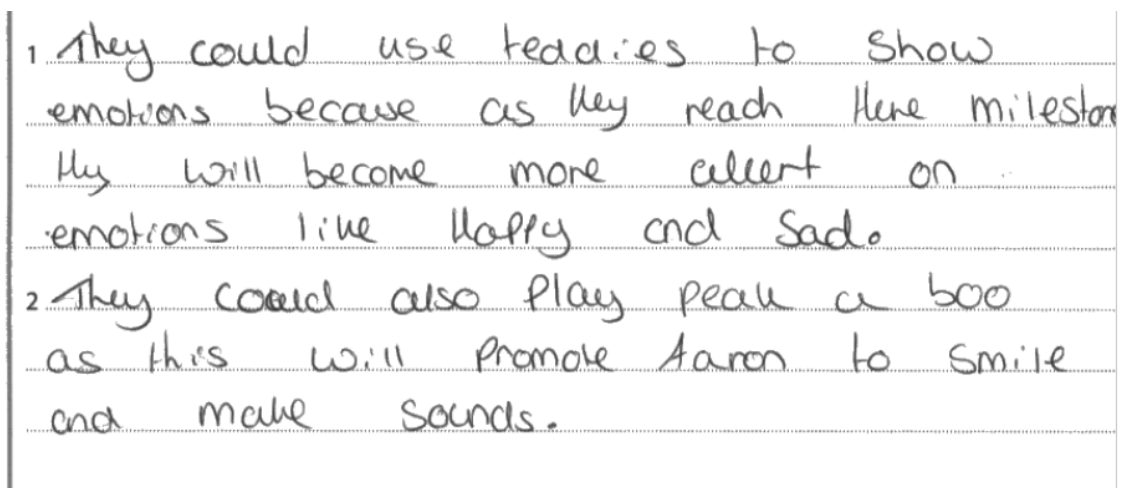 1 They could use teddies to show
emotions because as they reach there milestone
they will become more alert on
emotions like Happy and Sad.
2 They could also play peak a boo
as this will promote Aaron to smile
and make sounds.